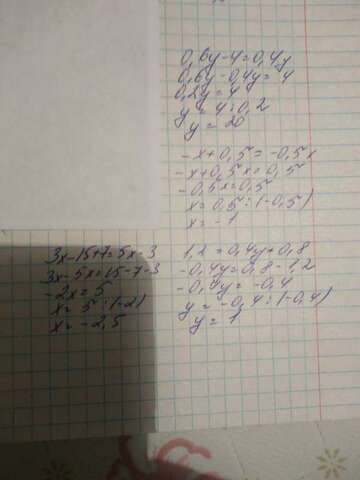 0,6y-4=0,4y
0,6y-0,4y=4
0,2y=4
y=4:0,2
y=20
-x+0,5=-0,5x
-x+0,5x=0,5
-0,5x=0,5
x=0,5:(-0,5)
x=-1
3x-15+7=5x-3
3x-5x=15-7-3
-2x=5
x=5:(-2)
x=-2,5
1,2=0,4y+0,8
-0,4y=0,8-1,2
-0,4y=-0,4
y=-0,4:(-0,4)
y=1